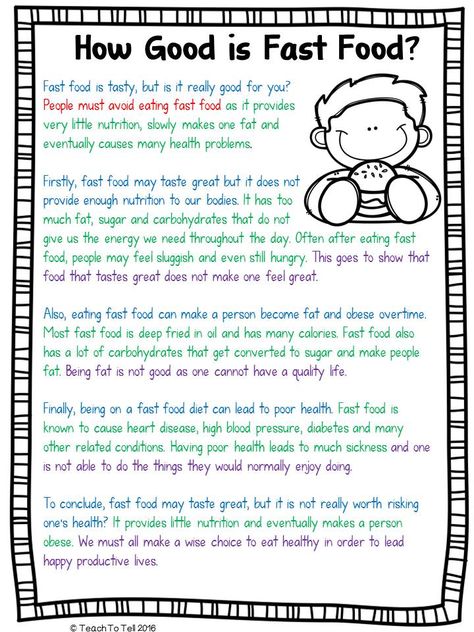 How Good is Fast Food?
Fast food is tasty, but is it really good for you?
People must avoid eating fast food as it provides
very little nutrition, slowly makes one fat and
eventually causes many health problems.
Firstly, fast food may taste great but it does not
provide enough nutrition to our bodies. It has too
much fat, sugar and carbohydrates that do not
give us the energy we need throughout the day. Often after eating fast
food, people may feel sluggish and even still hungry. This goes to show that
food that tastes great does not make one feel great.
Also, eating fast food can make a person become fat and obese overtime.
Most fast food is deep fried in oil and has many calories. Fast food also
has a lot of carbohydrates that get converted to sugar and make people
fat. Being fat is not good as one cannot have a quality life.
Finally, being on a fast food diet can lead to poor health. Fast food is
known to cause heart disease, high blood pressure, diabetes and many
other related conditions. Having poor health leads to much sickness and one
is not able to do the things they would normally enjoy doing.
To conclude, fast food may taste great, but it is not really worth risking
one's health? It provides little nutrition and eventually makes a person
obese. We must all make a wise choice to eat healthy in order to lead
happy productive lives.
© TeachTo Tell 2016